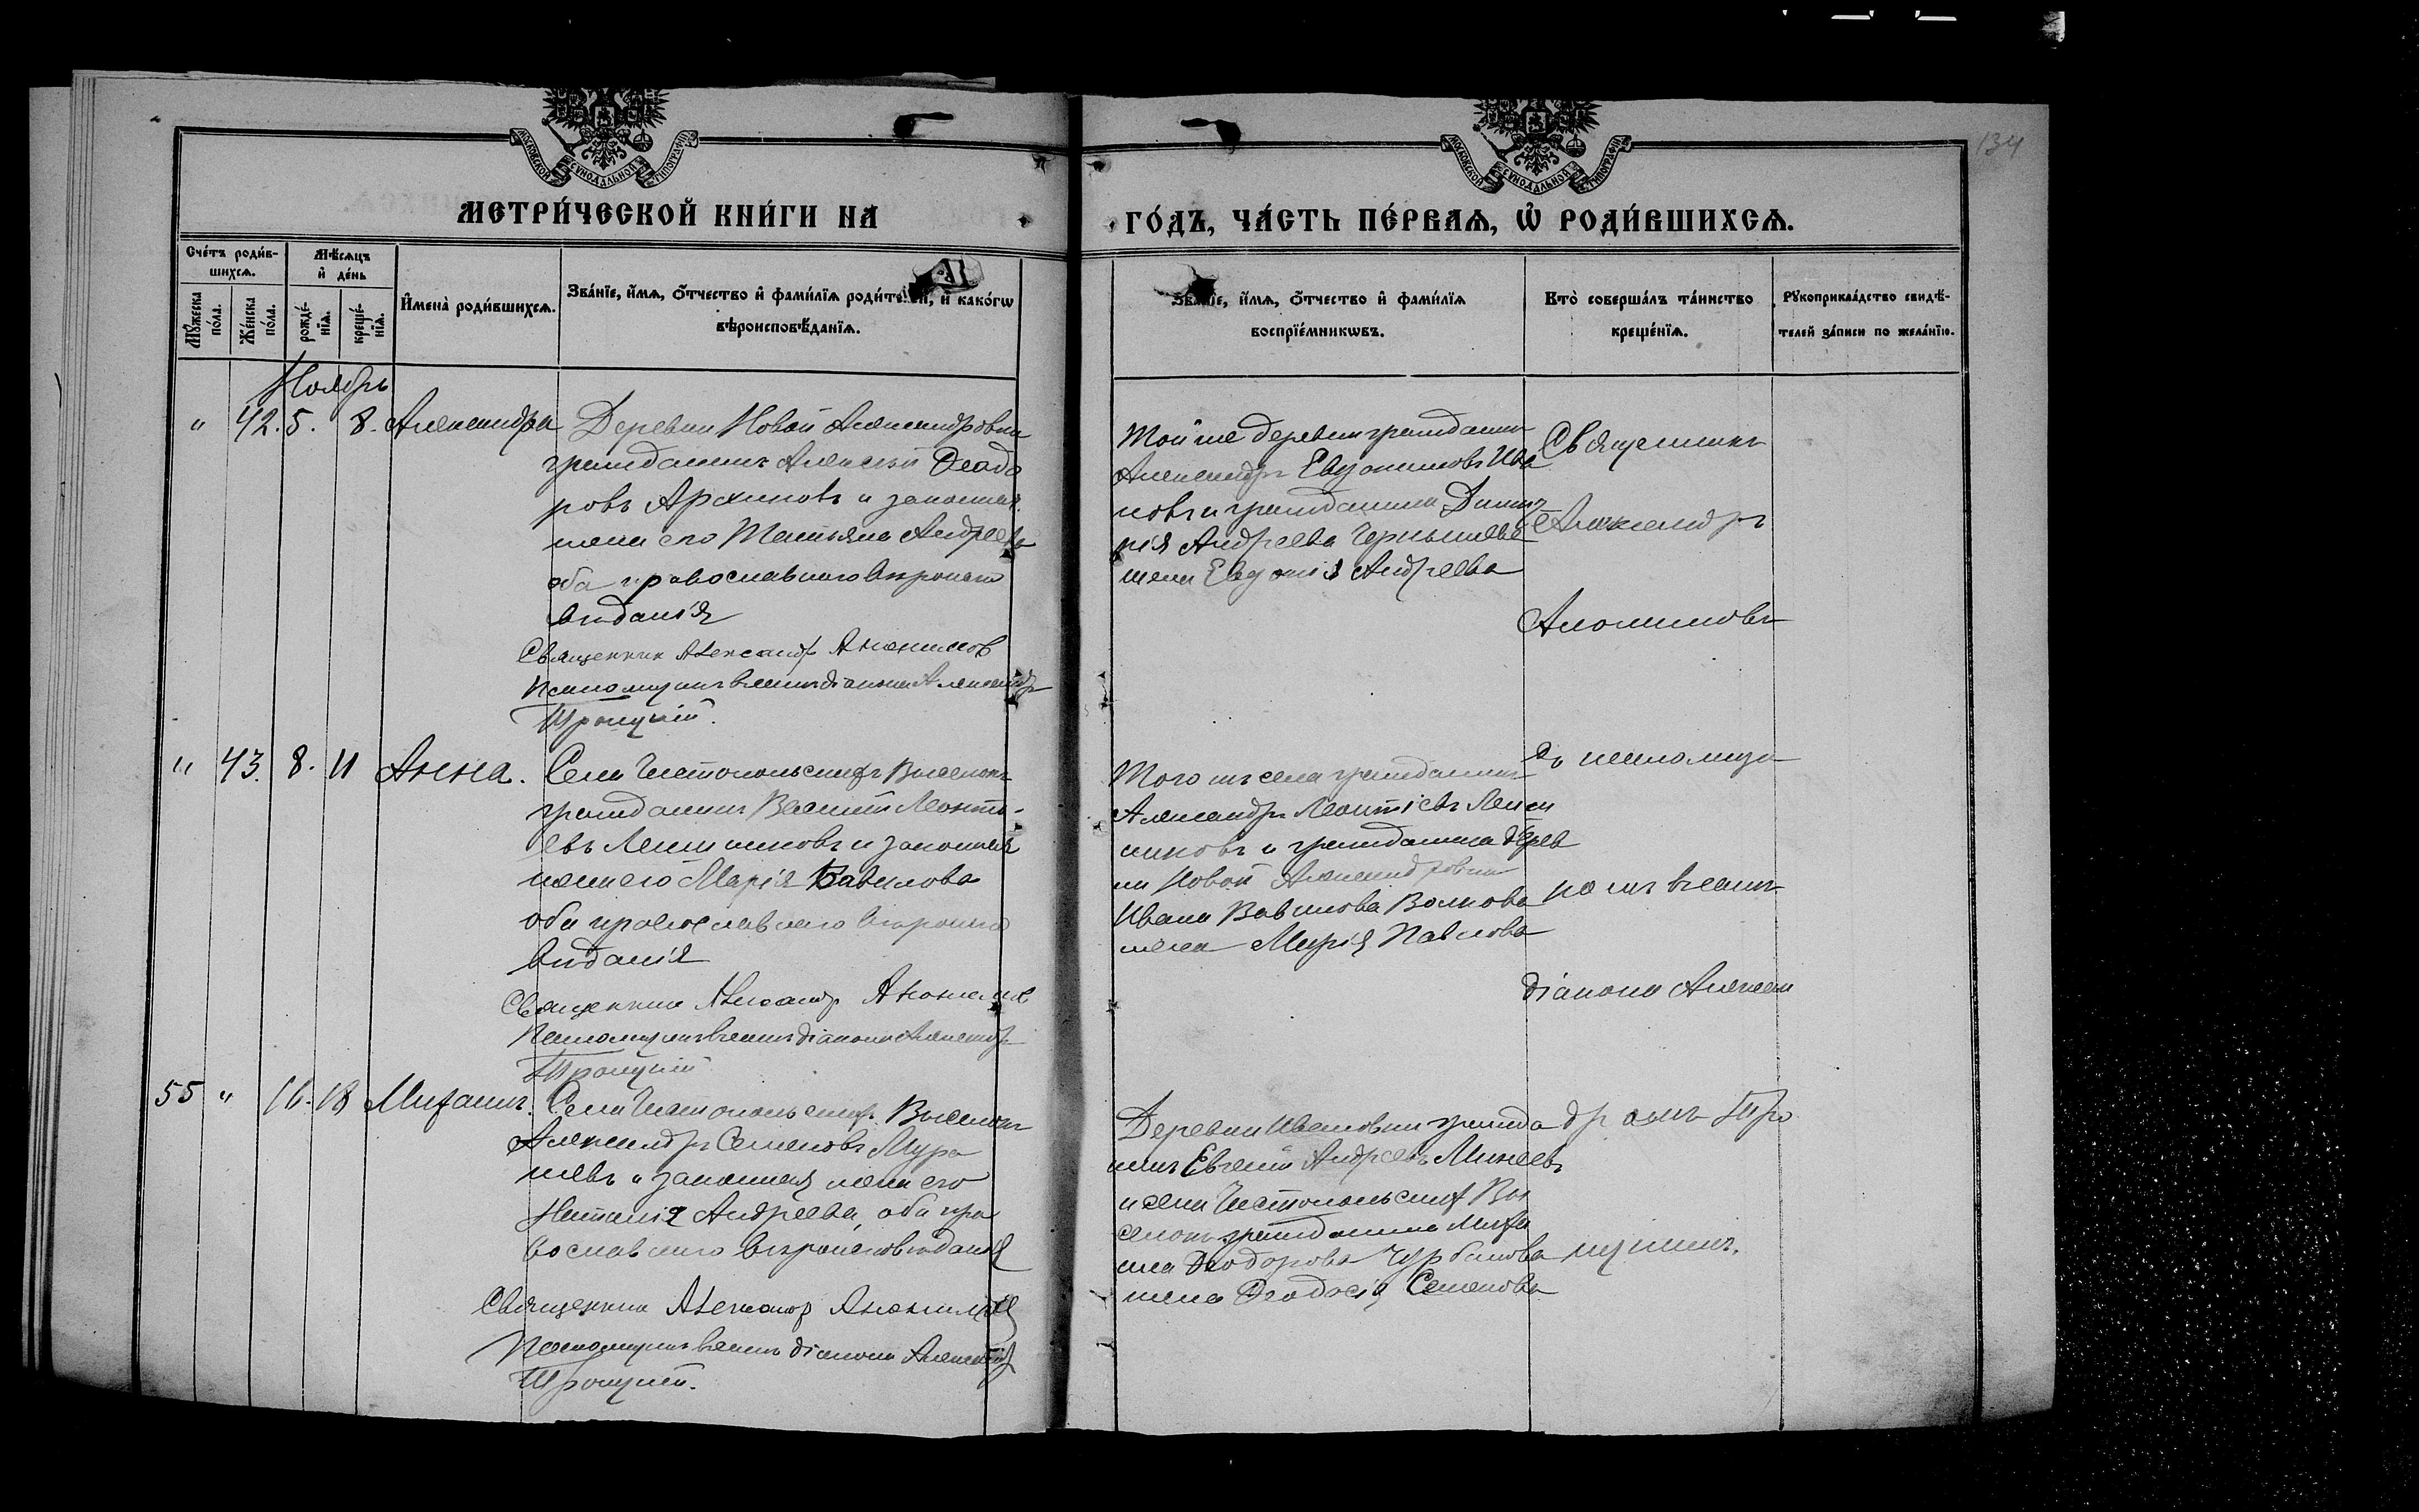 134
МОСКОВСКОЙ СѴНОДАЛЬНОЙ ТИПОГРАФІИ
МОСКОВСКОЙ СѴНОДАЛЬНОЙ ТИПОГРАФІИ
МЕТРИ́ЧЕСКОЙ КНИ́ГИ НА
ГО́ДЪ, ЧА́СТЬ ПЕ́РВАѦ, Ѽ РОДИ́ВШИХСѦ.
Сче́тъ роди́в-
шихсѧ.
Мѣ́сѧцъ
и҆ де́нь
Мꙋ́жеска
по́ла.
Же́нска
по́ла.
рожде́-
нїѧ.
креще́-
нїѧ.
И҆мена̀ роди́вшихсѧ.
Зва́нїе, и҆́мѧ, ѻ҆́тчество и҆ фами́лїѧ роди́телей, и҆ како́гѡ
вѣроисповѣ́данїѧ.
Зва́нїе, и҆́мѧ, ѻ҆́тчество и҆ фами́лїѧ
воспрїе́мникѡвъ.
Кто̀ соверша́лъ та́инство
креще́нїѧ.
Рꙋкоприкла́дство свидѣ́-
телей за́писи по жела́нїю.
Ноябрь
" 42. 5. 8. Александра
Деревни Новой Александровки
гражданинъ Алексѣй Ѳеодо
ровъ Архиповъ и законная
жена его Татьяна Андреева
оба православнаго вѣроиспо
вѣданія
Священник Александр Анонимов
Псаломщикъ діаконъ Александръ
Троицкій.
Той же деревни гражданин
Александръ Евдокимовъ Ива
новъ и гражданина Димит
рія Андреева Чернышева
жена Евдокія Андреева
Священникъ
Александръ
Анонимовъ
" 43. 8. 11 Анна.
Села Чистопольскихъ Выселокъ
гражданинъ Василій Леонть-
евъ и законная
жена его Марія Вавилова
оба православнаго вѣроиспо
вѣданія
Священник Александр Анонимов
Псаломщикъ діаконъ Александръ
Троицкій
Того же села гражданинъ
Александръ Леонтіевъ
и гражданина дерев
ни Новой Александровки
Ивана Вавилова Волкова
жена Марія Павлова
съ псаломщи
комъ
діакономъ Алексан
55 " 16. 18 Михаилъ.
Села Чистопольскихъ Выселокъ
Александръ Семеновъ
и законная жена его
Наталія Андреева, оба пра
вославнаго вѣроисповѣданія
Священник Александр Анонимов
Псаломщикъ діаконъ Александръ
Троицкій.
Деревни Ивановки гражда
нинъ Евгеній Андреевъ Минеевъ
и села Чистопольскихъ Вы
селокъ гражданина Михаи
ла Ѳеодорова Чурбанова
жена Ѳеодосія Семенова
дромъ Тро
ицкимъ.